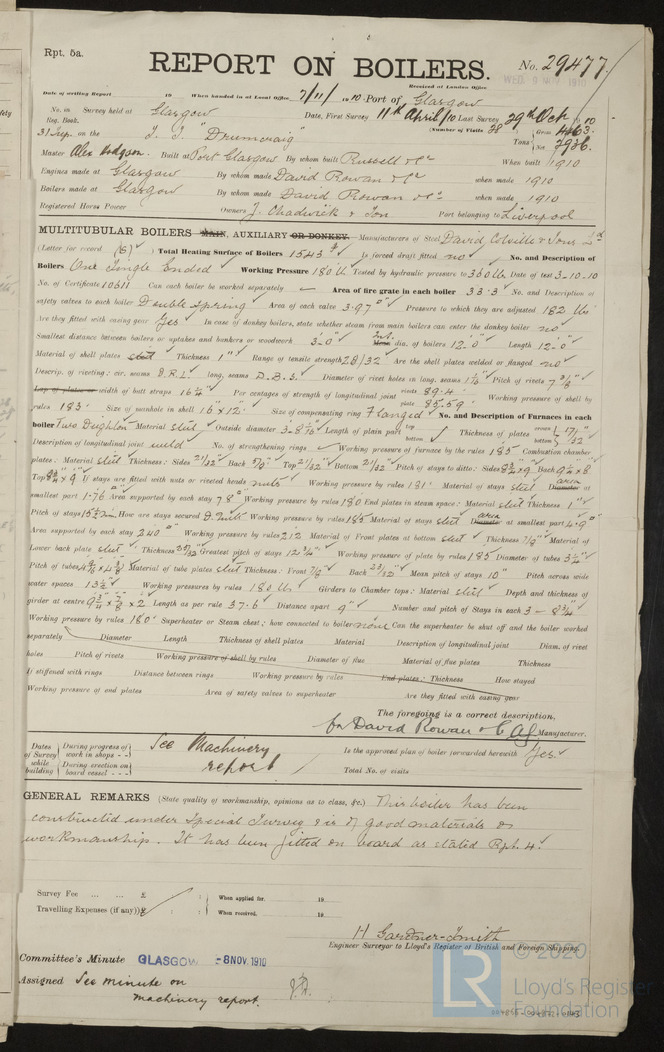 Rpt. 5a.
REPORT ON BOILERS.
No. 29477.
Received at London Office WED. 9 NOV 1910
Date of writing Report 19 When handed in at Local Office 7/11/1910 Port of Glasgow
No. in Reg. Book. Survey held at Glasgow Date, First Survey 11th April/10 Last Survey 29th Oct 1910
31 Sup. on the "Drumcraig" (Number of Visits 98 Tons Gross 4463. Net 2936.
Master Alex Hodgson. Built at Port Glasgow By whom built Russell & Co When built 1910
Engines made at Glasgow By whom made David Rowan & Co when made 1910
Boilers made at Glasgow By whom made David Rowan & Co when made 1910
Registered Horse Power Owners J. Chadwick & Son Port belonging to Liverpool
MULTITUBULAR BOILERS MAIN, AUXILIARY OR DONKEY. Manufacturers of Steel David Colville & Sons Ld
(Letter for record (S) ) Total Heating Surface of Boilers 1543 Is forced draft fitted no No. and Description of
Boilers One Single Ended Working Pressure 180 lb Tested by hydraulic pressure to 360 lb Date of test 3-10-10
No. of Certificate 10611 Can each boiler be worked separately Area of fire grate in each boiler 33.3 No. and Description of
safety valves to each boiler Double Spring Area of each valve 3.97" Pressure to which they are adjusted 182 lbs
Are they fitted with easing gear Yes In case of donkey boilers, state whether steam from main boilers can enter the donkey boiler no
Smallest distance between boilers or uptakes and bunkers or woodwork 3-0" Int. Mean dia. of boilers 12-0" Length 12-0"
Material of shell plates steel Thickness 1" Range of tensile strength 28/32 Are the shell plates welded or flanged no
Descrip. of riveting: cir. seams D.R.L. long. seams D.B.S. Diameter of rivet holes in long. seams 1 1/16" Pitch of rivets 7 3/8"
Lap of plates or width of butt straps 16 1/4" Per centages of strength of longitudinal joint rivets 89.4 plate 85.59 Working pressure of shell by
rules 183 Size of manhole in shell 16 x 12 Size of compensating ring Flanged No. and Description of Furnaces in each
boiler Two Deighton Material steel Outside diameter Length of plain part top bottom Thickness of plates crown bottom 17/32
Description of longitudinal joint weld No. of strengthening rings Working pressure of furnace by the rules 185 Combustion chamber
plates: Material steel Thickness: Sides 21/32 Back 5/8" Top 21/32 Bottom 21/32 Pitch of stays to ditto: Sides 8 3/4 x 9 Back 9 1/4 x 8
Top 8 3/4 x 9 If stays are fitted with nuts or riveted heads nuts Working pressure by rules 181 Material of stays steel area Diameter at
smallest part 1.76 Area supported by each stay 78 Working pressure by rules 180 End plates in steam space: Material steel Thickness 1"
Pitch of stays How are stays secured D. Nuts Working pressure by rules 185 Material of stays steel area Diameter at smallest part 4.9
Area supported by each stay 240 Working pressure by rules 212 Material of Front plates at bottom steel Thickness 7/8" Material of
Lower back plate steel Thickness 25/32 Greatest pitch of stays 12 3/4" Working pressure of plate by rules 185 Diameter of tubes 3 1/4"
Pitch of tubes Material of tube plates steel Thickness: Front 7/8" Back 23/32 Mean pitch of stays 10" Pitch across wide
water spaces 13 1/2" Working pressures by rules 180 lb Girders to Chamber tops: Material steel Depth and thickness of
girder at centre 9 3/4 x 7/8 x 2 Length as per rule 37.6 Distance apart 9" Number and pitch of Stays in each 3 - 8 3/4"
Working pressure by rules 180 Superheater or Steam chest; how connected to boiler none Can the superheater be shut off and the boiler worked
separately Diameter Length Thickness of shell plates Material Description of longitudinal joint Diam. of rivet
holes Pitch of rivets Working pressure of shell by rules Diameter of flue Material of flue plates Thickness
If stiffened with rings Distance between rings Working pressure by rules End plates: Thickness How stayed
Working pressure of end plates Area of safety valves to superheater Are they fitted with easing gear
The foregoing is a correct description,
for David Rowan & Co Manufacturer.
Dates of Survey while building During progress of work in shops - - During erection on board vessel - - - See Machinery report Is the approved plan of boiler forwarded herewith Yes.
Total No. of visits
GENERAL REMARKS (State quality of workmanship, opinions as to class, &c.) This boiler has been
constructed under Special Survey & is of good materials &
workmanship. It has been fitted on board as stated Rpt. 4.
Survey Fee ... ... £ : : When applied for. 19
Travelling Expenses (if any) £ : : When received. 19
H Gardner-Smith
Engineer Surveyor to Lloyd's Register of British and Foreign Shipping.
Committee's Minute GLASGOW -8 NOV. 1910
Assigned See minute on
machinery report.
© 2020
LR
Lloyd's Register
Foundation